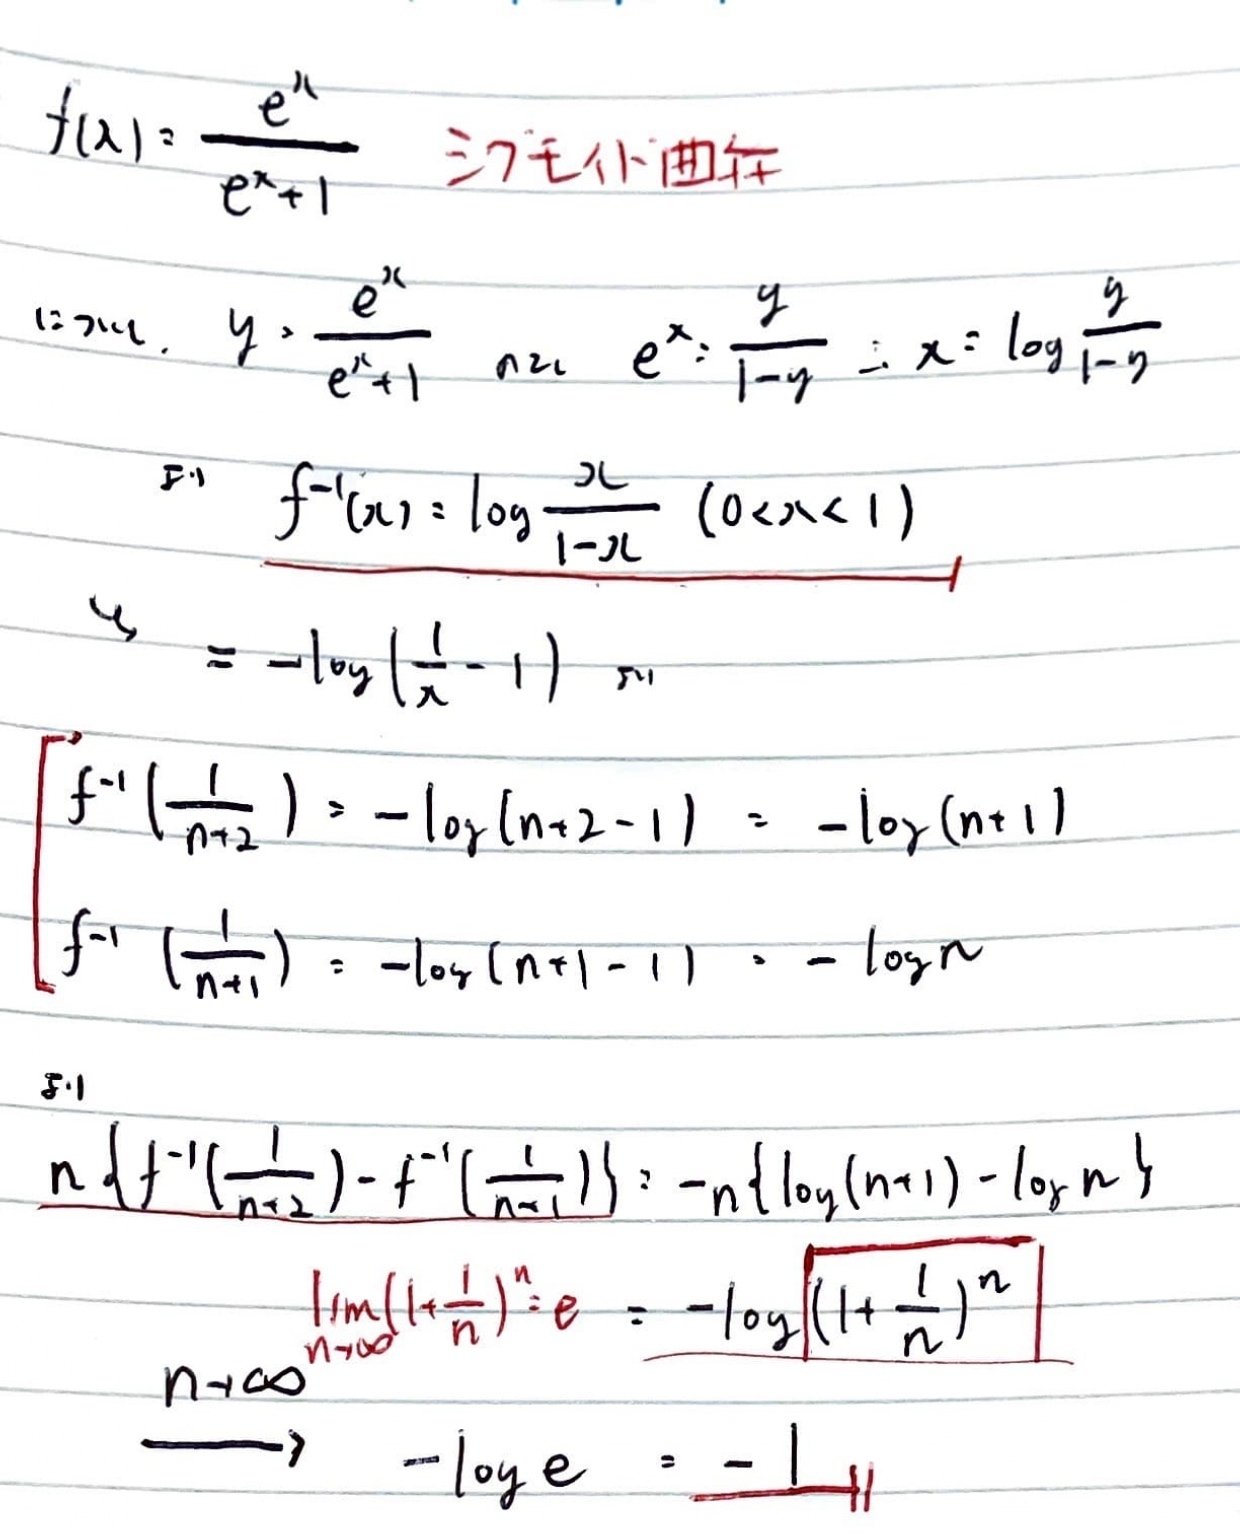 f(x) = e^x / (e^x + 1) シグモイド曲線
について, y = e^x / (e^x + 1) e^x = y / (1-y) ∴ x = log y / (1-y)
より f^{-1}(x) = log x / (1-x) (0<x<1)
= -log(1/x - 1) より
f^{-1}(1/(n+2)) = -log(n+2-1) = -log(n+1)
f^{-1}(1/(n+1)) = -log(n+1-1) = -log n
より
n{f^{-1}(1/(n+2)) - f^{-1}(1/(n+1))} = -n{log(n+1) - log n}
lim_{n→∞}(1+1/n)^n = e = -log(1+1/n)^n
n→∞
→ -log e = -1